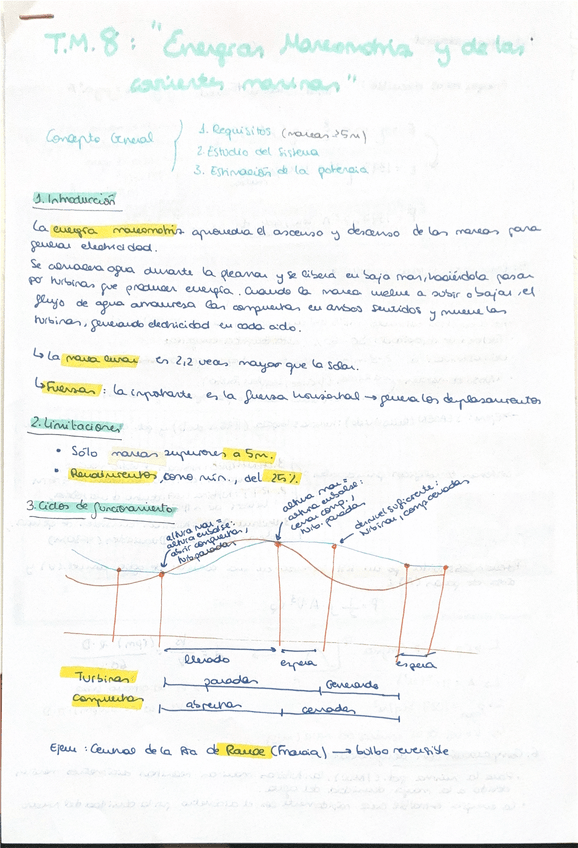 T.M. 8: "Energías Mareomotriz y de las
corrientes marinas"
Concepto General
1. Requisitos (mareas >5m)
2. Estudio del Sistema
3. Estimación de la potencia
1. Introducción
La energía mareomotriz aprovecha el ascenso y descenso de las mareas para
generar electricidad.
Se almacena agua durante la pleamar y se libera en baja mar, haciéndola pasar
por turbinas que producen energía. Cuando la marea vuelve a subir o bajar, el
flujo de agua atraviesa las compuertas en ambos sentidos y mueve las
turbinas, generando electricidad en cada ciclo.
↳ La marea lunar es 2,2 veces mayor que la solar.
↳ Fuerzas: la importante es la fuerza horizontal → genera los desplazamientos
2. Limitaciones
• Sólo mareas superiores a 5m.
• Rendimientos, como mín., del 25%.
3. Ciclos de funcionamiento
altura mar =
altura embalse:
abrir compuertas,
turb. paradas
altura mar =
altura embalse:
cerrar comp.,
turb. paradas
desnivel suficiente:
turbinas, comp. cerradas
llenado
espera
espera
Turbinas
paradas
Generando
Compuertas
abiertas
cerradas
Ejem: Central de la Ría de Rance (Francia) → bulbo reversible